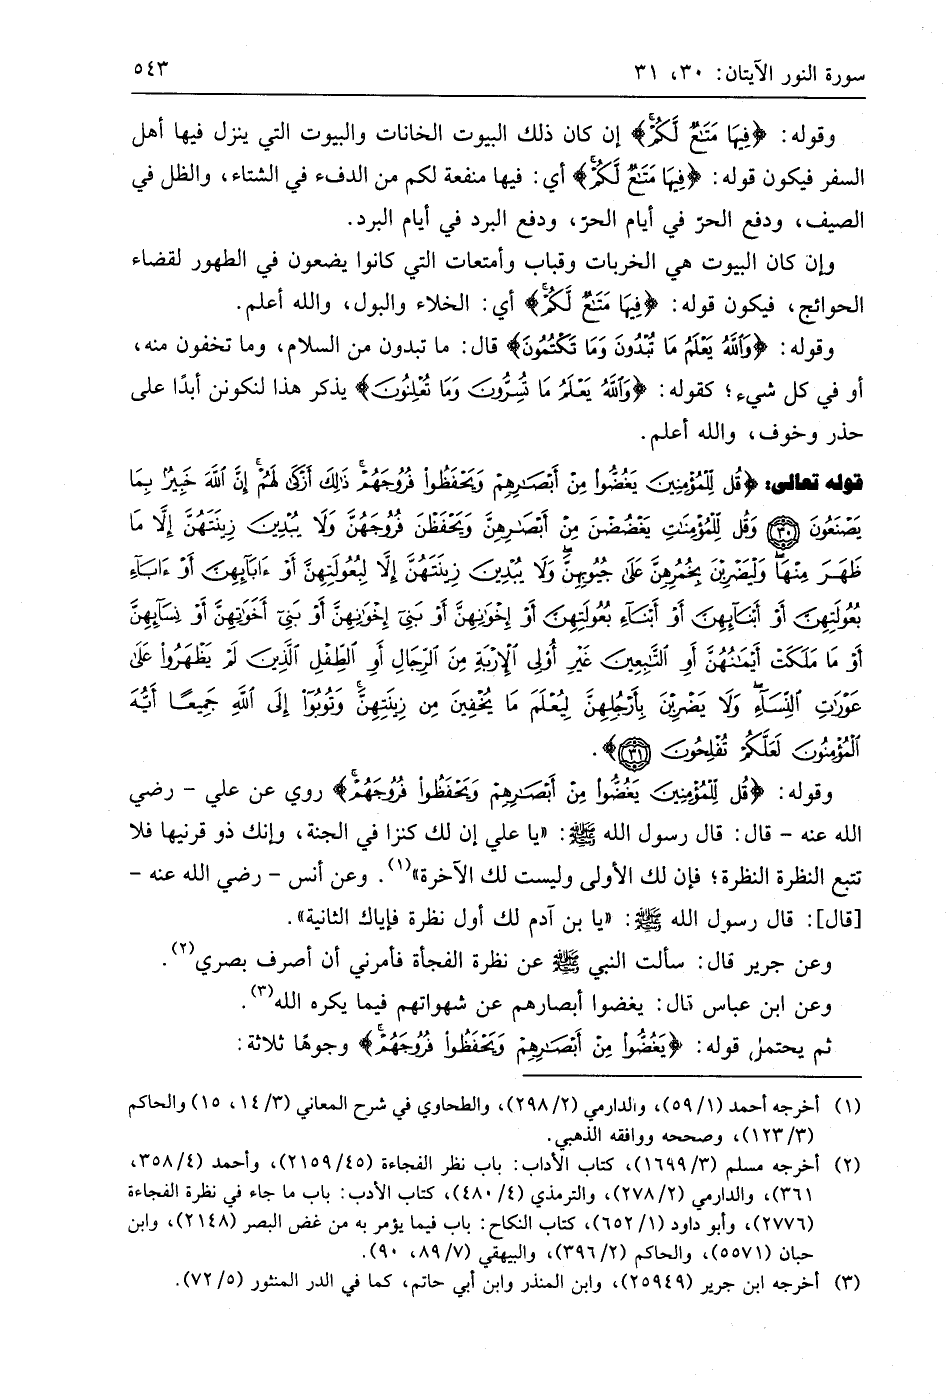 سورة النور الآيتان: ٣٠، ٣١
٥٤٣
وقوله: ﴿فِيهَا مَتَٰعٌ لَّكُمْۚ﴾ إن كان ذلك البيوت الخانات والبيوت التي ينزل فيها أهل
السفر فيكون قوله: ﴿فِيهَا مَتَٰعٌ لَّكُمْۚ﴾ أي: فيها منفعة لكم من الدفء في الشتاء، والظل في
الصيف، ودفع الحرّ في أيام الحرّ، ودفع البرد في أيام البرد.
وإن كان البيوت هي الخربات وقباب وأمتعات التي كانوا يضعون في الطهور لقضاء
الحوائج، فيكون قوله: ﴿فِيهَا مَتَٰعٌ لَّكُمْۚ﴾ أي: الخلاء والبول، والله أعلم.
وقوله: ﴿وَٱللَّهُ يَعْلَمُ مَا تُبْدُونَ وَمَا تَكْتُمُونَ﴾ قال: ما تبدون من السلام، وما تخفون منه،
أو في كل شيء؛ كقوله: ﴿وَٱللَّهُ يَعْلَمُ مَا تُسِرُّونَ وَمَا تُعْلِنُونَ﴾ يذكر هذا لنكونن أبدًا على
حذر وخوف، والله أعلم.
قوله تعالى: ﴿قُل لِّلْمُؤْمِنِينَ يَغُضُّوا۟ مِنْ أَبْصَٰرِهِمْ وَيَحْفَظُوا۟ فُرُوجَهُمْۚ ذَٰلِكَ أَزْكَىٰ لَهُمْۚ إِنَّ ٱللَّهَ خَبِيرٌۢ بِمَا
يَصْنَعُونَ ٣٠ وَقُل لِّلْمُؤْمِنَٰتِ يَغْضُضْنَ مِنْ أَبْصَٰرِهِنَّ وَيَحْفَظْنَ فُرُوجَهُنَّ وَلَا يُبْدِينَ زِينَتَهُنَّ إِلَّا مَا
ظَهَرَ مِنْهَاۖ وَلْيَضْرِبْنَ بِخُمُرِهِنَّ عَلَىٰ جُيُوبِهِنَّۖ وَلَا يُبْدِينَ زِينَتَهُنَّ إِلَّا لِبُعُولَتِهِنَّ أَوْ ءَابَآئِهِنَّ أَوْ ءَابَآءِ
بُعُولَتِهِنَّ أَوْ أَبْنَآئِهِنَّ أَوْ أَبْنَآءِ بُعُولَتِهِنَّ أَوْ إِخْوَٰنِهِنَّ أَوْ بَنِىٓ إِخْوَٰنِهِنَّ أَوْ بَنِىٓ أَخَوَٰتِهِنَّ أَوْ نِسَآئِهِنَّ
أَوْ مَا مَلَكَتْ أَيْمَٰنُهُنَّ أَوِ ٱلتَّٰبِعِينَ غَيْرِ أُو۟لِى ٱلْإِرْبَةِ مِنَ ٱلرِّجَالِ أَوِ ٱلطِّفْلِ ٱلَّذِينَ لَمْ يَظْهَرُوا۟ عَلَىٰ
عَوْرَٰتِ ٱلنِّسَآءِۖ وَلَا يَضْرِبْنَ بِأَرْجُلِهِنَّ لِيُعْلَمَ مَا يُخْفِينَ مِن زِينَتِهِنَّۚ وَتُوبُوٓا۟ إِلَى ٱللَّهِ جَمِيعًا أَيُّهَ
ٱلْمُؤْمِنُونَ لَعَلَّكُمْ تُفْلِحُونَ ٣١﴾.
وقوله: ﴿قُل لِّلْمُؤْمِنِينَ يَغُضُّوا۟ مِنْ أَبْصَٰرِهِمْ وَيَحْفَظُوا۟ فُرُوجَهُمْۚ﴾ روي عن علي - رضي
الله عنه - قال: قال رسول الله ﷺ: «يا علي إن لك كنزا في الجنة، وإنك ذو قرنيها فلا
تتبع النظرة النظرة؛ فإن لك الأولى وليست لك الآخرة»(١). وعن أنس - رضي الله عنه -
[قال]: قال رسول الله ﷺ: «يا بن آدم لك أول نظرة فإياك الثانية».
وعن جرير قال: سألت النبي ﷺ عن نظرة الفجأة فأمرني أن أصرف بصري(٢).
وعن ابن عباس قال: يغضوا أبصارهم عن شهواتهم فيما يكره الله(٣).
ثم يحتمل قوله: ﴿يَغُضُّوا۟ مِنْ أَبْصَٰرِهِمْ وَيَحْفَظُوا۟ فُرُوجَهُمْۚ﴾ وجوهًا ثلاثة:
(١) أخرجه أحمد (٥٩/١)، والدارمي (٢٩٨/٢)، والطحاوي في شرح المعاني (١٤/٣، ١٥) والحاكم
(١٢٣/٣)، وصححه ووافقه الذهبي.
(٢) أخرجه مسلم (١٦٩٩/٣)، كتاب الآداب: باب نظر الفجاءة (٢١٥٩/٤٥)، وأحمد (٣٥٨/٤،
٣٦١)، والدارمي (٢٧٨/٢)، والترمذي (٤٨٠/٤)، كتاب الأدب: باب ما جاء في نظرة الفجاءة
(٢٧٧٦)، وأبو داود (٦٥٢/١)، كتاب النكاح: باب فيما يؤمر به من غض البصر (٢١٤٨)، وابن
حبان (٥٥٧١)، والحاكم (٣٩٦/٢)، والبيهقي (٨٩/٧، ٩٠).
(٣) أخرجه ابن جرير (٢٥٩٤٩)، وابن المنذر وابن أبي حاتم، كما في الدر المنثور (٧٢/٥).